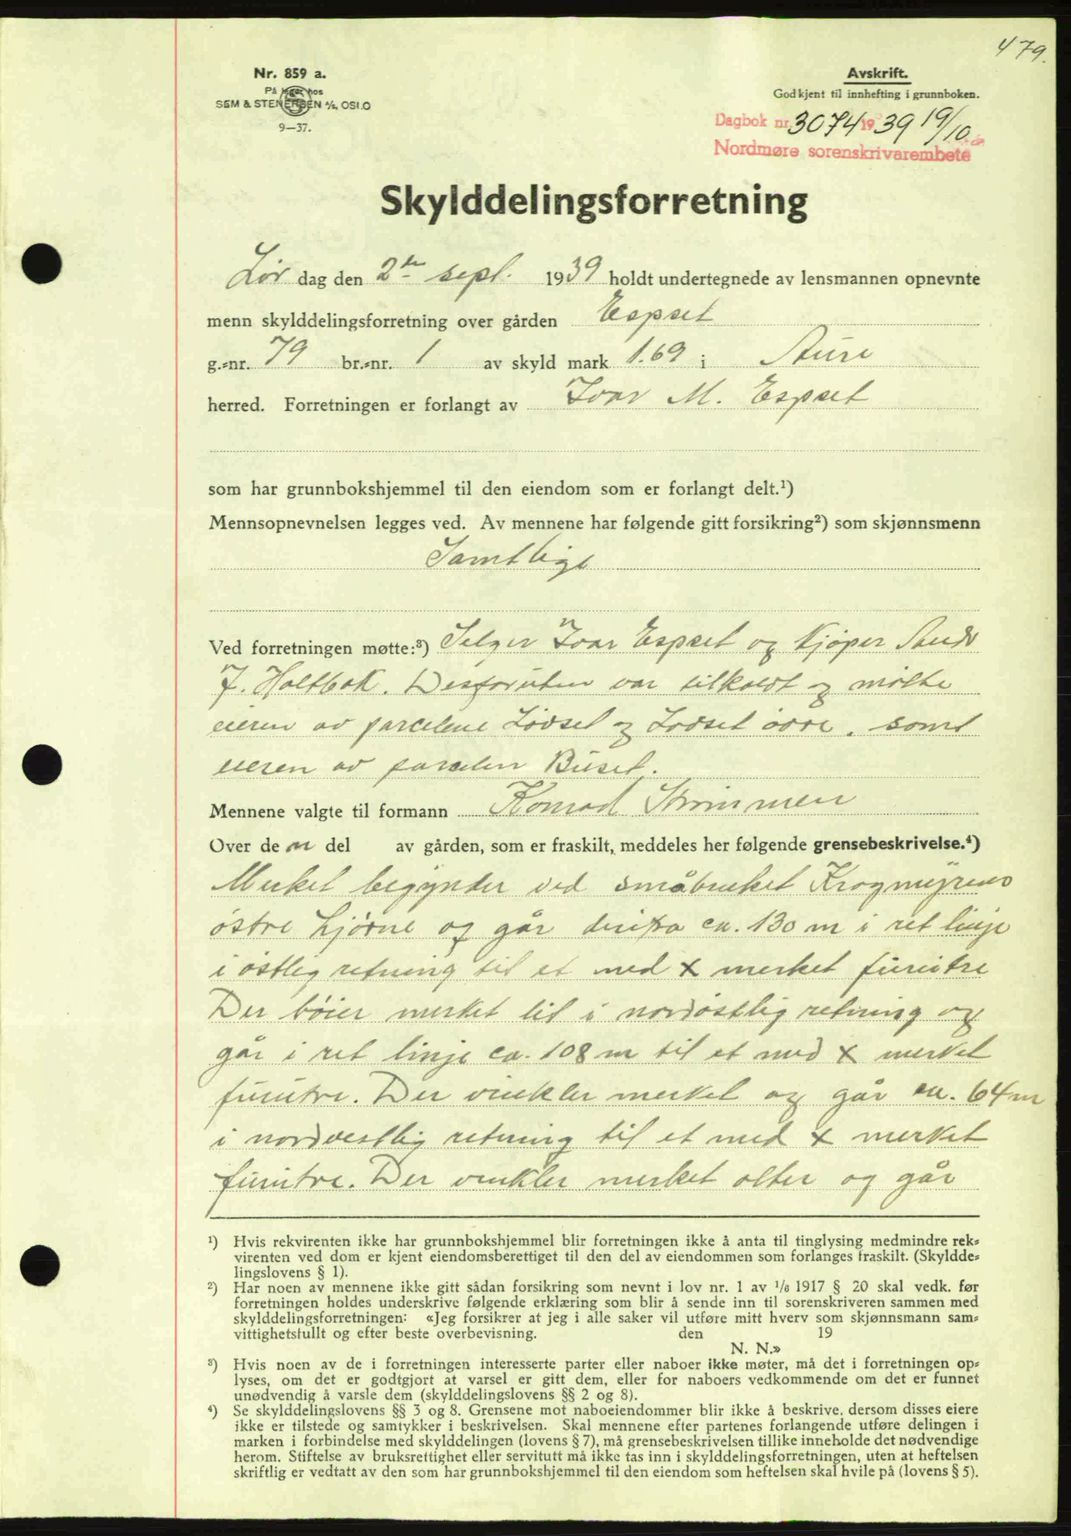 479.
Nr. 859 a.
På lager hos
SEM & STENERSEN A/S, OSLO
9—37.
Avskrift.
Godkjent til innhefting i grunnboken.
Dagbok nr. 3074 1939 19/10
Nordmøre sorenskrivarembete
Skylddelingsforretning
Lør dag den 2den sept. 1939 holdt undertegnede av lensmannen opnevnte
menn skylddelingsforretning over gården Espset
g.=nr. 79 br.=nr. 1 av skyld mark 1.69 i Aure
herred. Forretningen er forlangt av Ivar M. Espset
som har grunnbokshjemmel til den eiendom som er forlangt delt.¹)
Mennsopnevnelsen legges ved. Av mennene har følgende gitt forsikring²) som skjønnsmenn
Samtlige
Ved forretningen møtte:³) Selger Ivar Espset og Kjøper
J. Holtbak. Desforuten var tilkaldt og møtte
eieren av parcelene Lødset og Lødset övre, samt
eieren av parcelen Buset.
Mennene valgte til formann Konrad Strømmen
Over den del av gården, som er fraskilt, meddeles her følgende grensebeskrivelse.⁴)
Merket begynder ved småbruket Krogmyrens
östre hjörne og går derifra ca. 130 m i ret linje
i östlig retning til et med x merket furutre
Der böier merket lit i nordöstlig retning og
går i ret linje ca. 108 m til et med x merket
furutre. Der vinkler merket og går ca. 64 m
i nordvestlig retning til et med x merket
furutre. Der vinkler merket atter og går
¹) Hvis rekvirenten ikke har grunnbokshjemmel blir forretningen ikke å anta til tinglysing medmindre rek=
virenten ved dom er kjent eiendomsberettiget til den del av eiendommen som forlanges fraskilt. (Skyldde=
lingslovens § 1).
²) Har noen av mennene ikke gitt sådan forsikring som nevnt i lov nr. 1 av 1/6 1917 § 20 skal vedk. før
forretningen holdes underskrive følgende erklæring som blir å sende inn til sorenskriveren sammen med
skylddelingsforretningen: «Jeg forsikrer at jeg i alle saker vil utføre mitt hverv som skjønnsmann sam=
vittighetsfullt og efter beste overbevisning. den 19
N. N.»
³) Hvis noen av de i forretningen interesserte parter eller naboer ikke møter, må det i forretningen op=
lyses, om det er godtgjort at varsel er gitt dem, eller for naboers vedkommende om det er funnet
unødvendig å varsle dem (skylddelingslovens §§ 2 og 8).
⁴) Se skylddelingslovens §§ 3 og 8. Grensene mot naboeiendommer blir ikke å beskrive, dersom disses eiere
ikke er tilstede og samtykker i beskrivelsen. Skal mennene efter partenes forlangende utføre delingen i
marken i forbindelse med skylddelingen (lovens § 7), må grensebeskrivelsen tillike inneholde det nødvendige
herom. Stiftelse av bruksrettighet eller servitutt må ikke tas inn i skylddelingsforretningen, uten at heftelsen
skriftlig er vedtatt av den som har grunnbokshjemmel til den eiendom som heftelsen skal hvile på (lovens § 5).